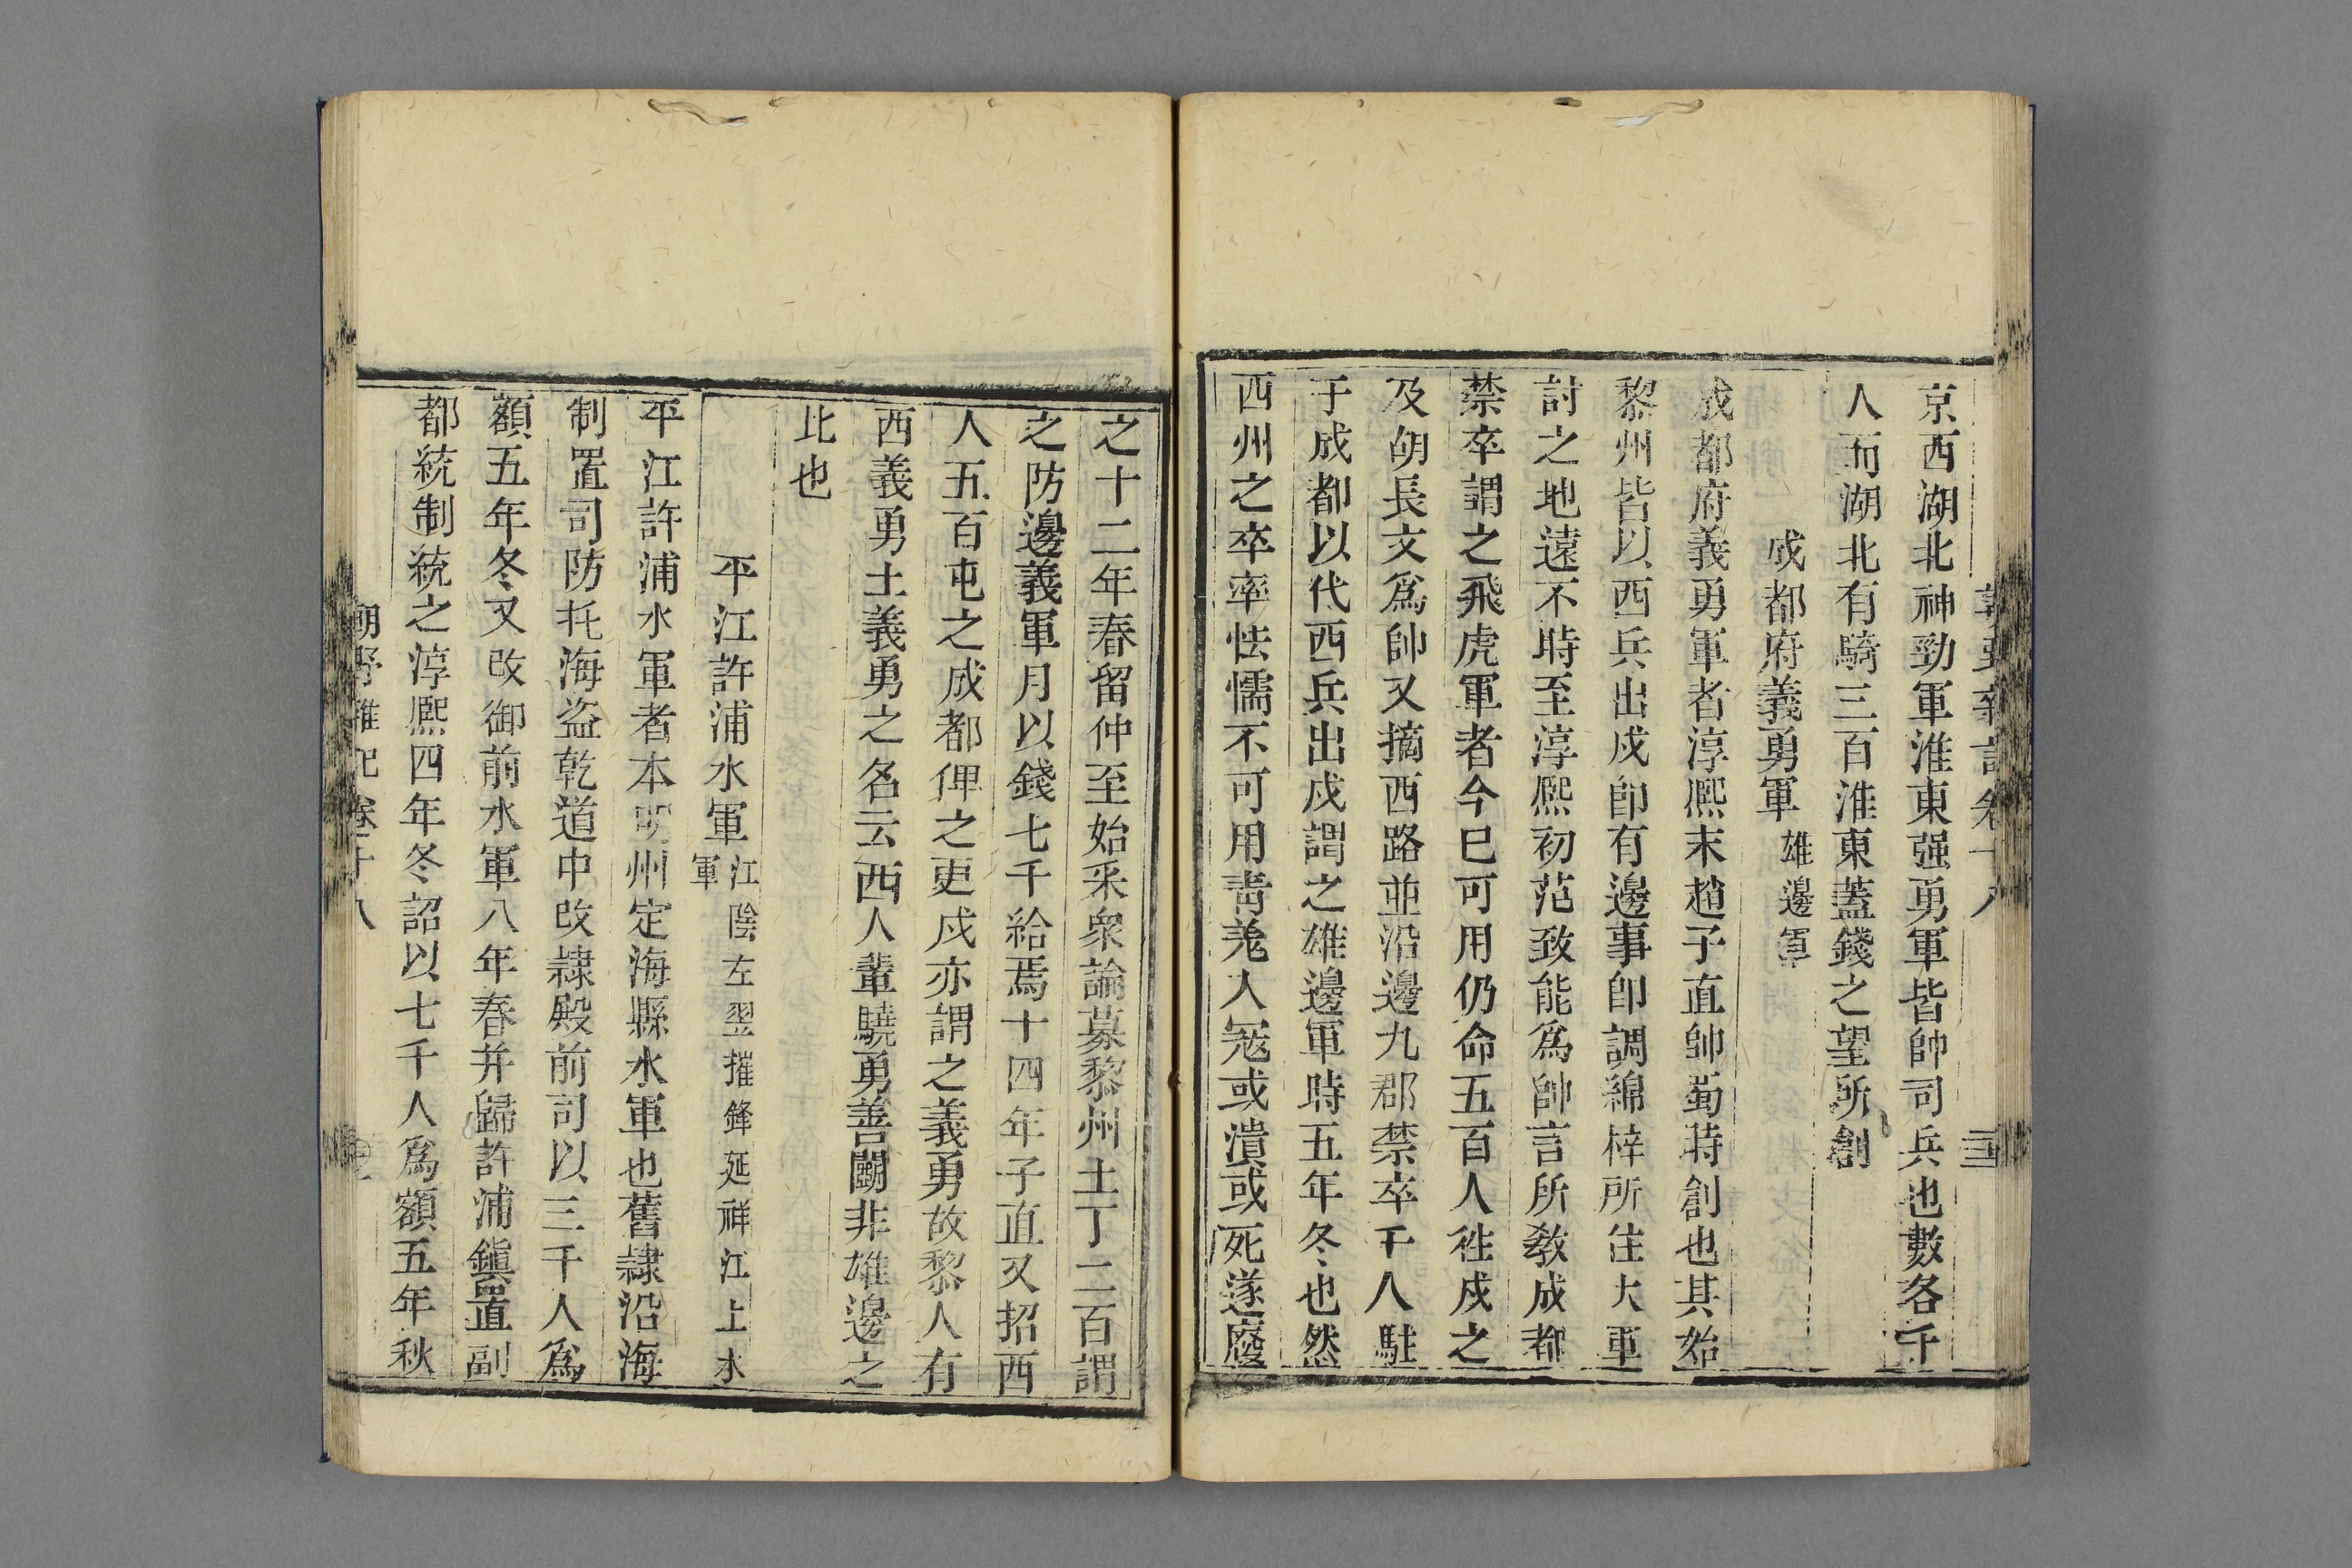 京西湖北神勁軍淮東强勇軍皆帥司兵也數各千
人而湖北有騎三百淮東蓋錢之望所創
成都府義勇軍 雄邊軍
成都府義勇軍者淳熈末趙子直帥蜀時創也其始
黎州皆以西兵出戍卽有邊事卽調綿梓所住大軍
討之地遠不時至淳熈初范致能爲帥言所敎成都
禁卒謂之飛虎軍者今巳可用仍命五百人徃戍之
及胡長文爲帥又摘西路並沿邊九郡禁卒千人駐
于成都以代西兵出戍謂之雄邊軍時五年冬也然
西州之卒率怯懦不可用靑羌入冦或潰或死遂廢
之十二年春留仲至始采衆論募黎州土丁二百謂
之防邊義軍月以錢七千給焉十四年子直又招西
人五百屯之成都俾之更戍亦謂之義勇故黎人有
西義勇土義勇之名云西人輩驍勇善鬭非雄邊之
比也
平江許浦水軍 江陰左翌摧鋒延祥江上水
軍
平江許浦水軍者本明州定海縣水軍也舊隷沿海
制置司防托海盜乾道中改隷殿前司以三千人爲
額五年冬又改御前水軍八年春并歸許浦鎭置副
都統制統之淳熈四年冬詔以七千人爲額五年秋
朝野雜記 卷十八